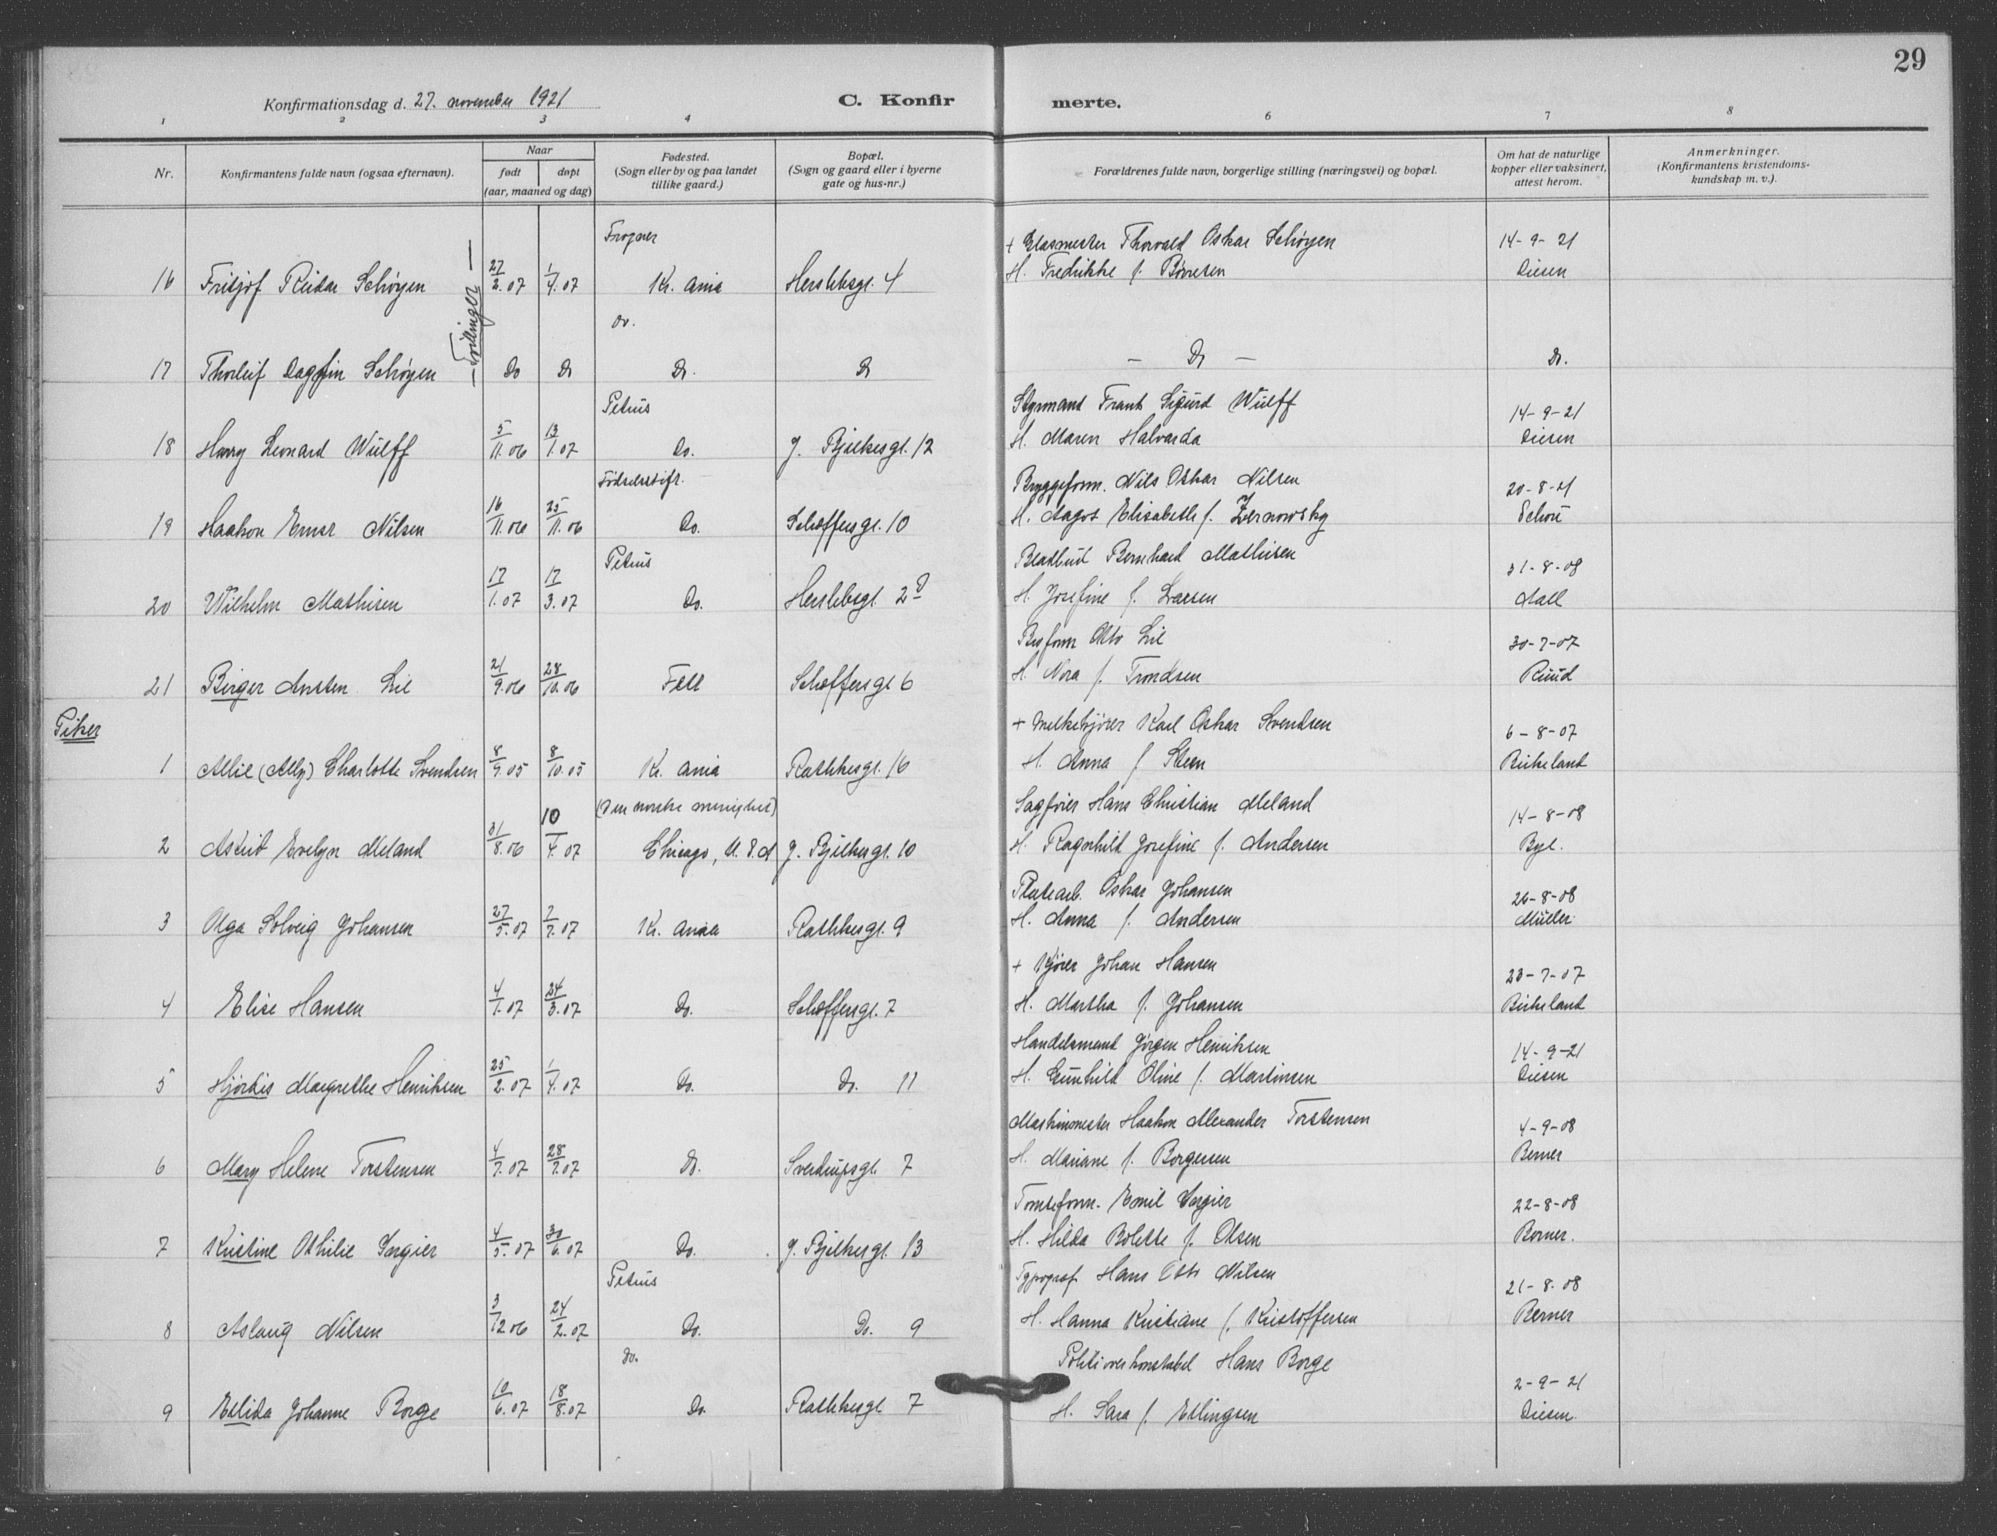 29
Konfirmationsdag d. 27. november 1921 C. Konfir merte.
1 2 3 4 6 7 8
Nr. Konfirmantens fulde navn (ogsaa efternavn). Naar født døpt (aar, maaned og dag) Fødested. (Sogn eller by og paa landet tillike gaard.) Bopæl. (Sogn og gaard eller i byerne gate og hus-nr.) Forældrenes fulde navn, borgerlige stilling (næringsvei) og bopæl. Om hat de naturlige kopper eller vaksinert, attest herom. Anmerkninger. (Konfirmantens kristendoms- kundskap m. v.).
Frogner + Glasmester Thorvald Oskar Schøyen 14-9-21
16 Fritjof Reidar Schøyen 27/2.07 1/4.07 Kr. ania Herslebsgt. 4 H. Fredrikke f. Børresen Diesen
- Tvillinger -
Do.
17 Thorleif Dagfin Schøyen Do Do Do. Do - Do - Do.
Petrus Styrmand Frants Sigurd Wulff 14-9-21
18 Harry Leonard Wulff 5/11.06 13/1.07 Do. J. Bjelkesgt. 12 H. Maren Halvarda Diesen
Fødselsstift. Bryggeform. Nils Oskar Nilsen 20-8-21
19 Haakon Ernst Nilsen 16/11.06 25/11.06 Do. Schæffersgt. 10 H. Dagot Elisabeth f. Zernowsky Schou
Petrus Bladbud Bernhard Mathisen 31-8-08
20 Wilhelm Mathisen 17/1.07 17/3.07 Do. Herslebsgt. 2 H. Josefine f. Larsen Mall
Otto Lie 30-7-07
21 Birger Ansten Lie 21/9.06 28/10.06 Fell Schæffersgt 6 H. Nora f. Trondsen Ruud
Piker
+ Melkekjører Karl Oskar Svendsen 6-8-07
1 Allie (Ally) Charlotte Svendsen 8/9.05 8/10.05 Kr. ania Rathkesgt. 16 H. Anna f. Steen Birkeland
(Den norske menighet) Sagfører Hans Christian Meland 14-8-08
2 Astrid Evelyn Meland 31/8.06 10/4.07 Chicago, U.S.A J. Bjelkesgt. 10 H. Ragnhild Josefine f. Andersen
Platearb. Oskar Johansen 26-8-08
3 Olga Solveig Johansen 27/5.07 7/7.07 Kr. ania Rathkesgt. 9 H. Anna f. Andersen Müller
+ Kjører Johan Hansen 23-7-07
4 Elise Hansen 4/1.07 24/3.07 Do. Schæffersgt. 7 H. Martha f. Johansen Birkeland
Handelsmand Jørgen Henriksen 14-9-21
5 Hjørdis Margrethe Henriksen 25/2.07 1/4.07 Do. Do. 11 H. Gunhild Oline f. Martinsen Diesen
Maskinmester Haakon Alexander Torstensen 4-9-08
6 Mary Helene Torstensen 4/7.07 28/7.07 Do. Sverdrupsgt. 7 H. Mariane f. Borgersen Berner
Tomteform. Emil Sørgier 22-8-08
7 Kristine Othilie Sørgier 4/5.07 30/6.07 Do. J. Bjelkesgt. 13 H. Hilda Bolette f. Olsen Borner.
Petrus Typograf Hans Otto Nilsen 21-8.08
8 Aslaug Nilsen 3/12.06 24/2.07 Do. Do. 9 H. Hanna Kristiane f. Kristoffersen Berner
Do. Politioverkonstabel Hans Borge 2-9-21
9 Ellida Johanne Borge 10/6.07 18/8.07 Do. Rathkesgt 7 H. Sara f. Ellingsen Diesen